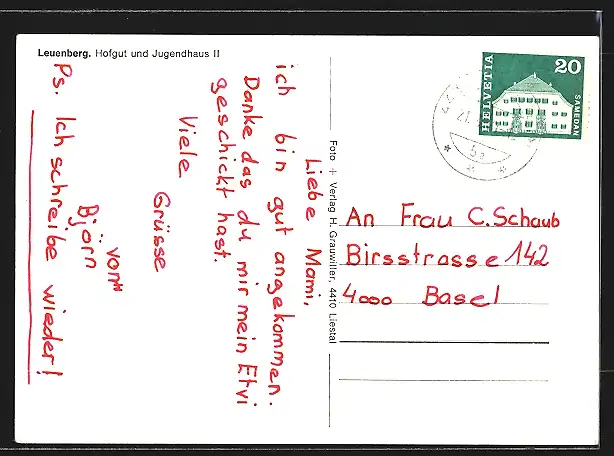 Leuenberg. Hofgut und Jugendhaus II
Liebe Mami,
ich bin gut angekommen.
Danke das du mir mein Etvi
geschickt hast.
Viele
Grüsse
von
Björn
Ps. Ich schreibe wieder!
Foto + Verlag H. Grauwiller, 4410 Liestal
HELVETIA
20
SAMEDAN
An Frau C. Schaub
Birsstrasse 142
4000 Basel